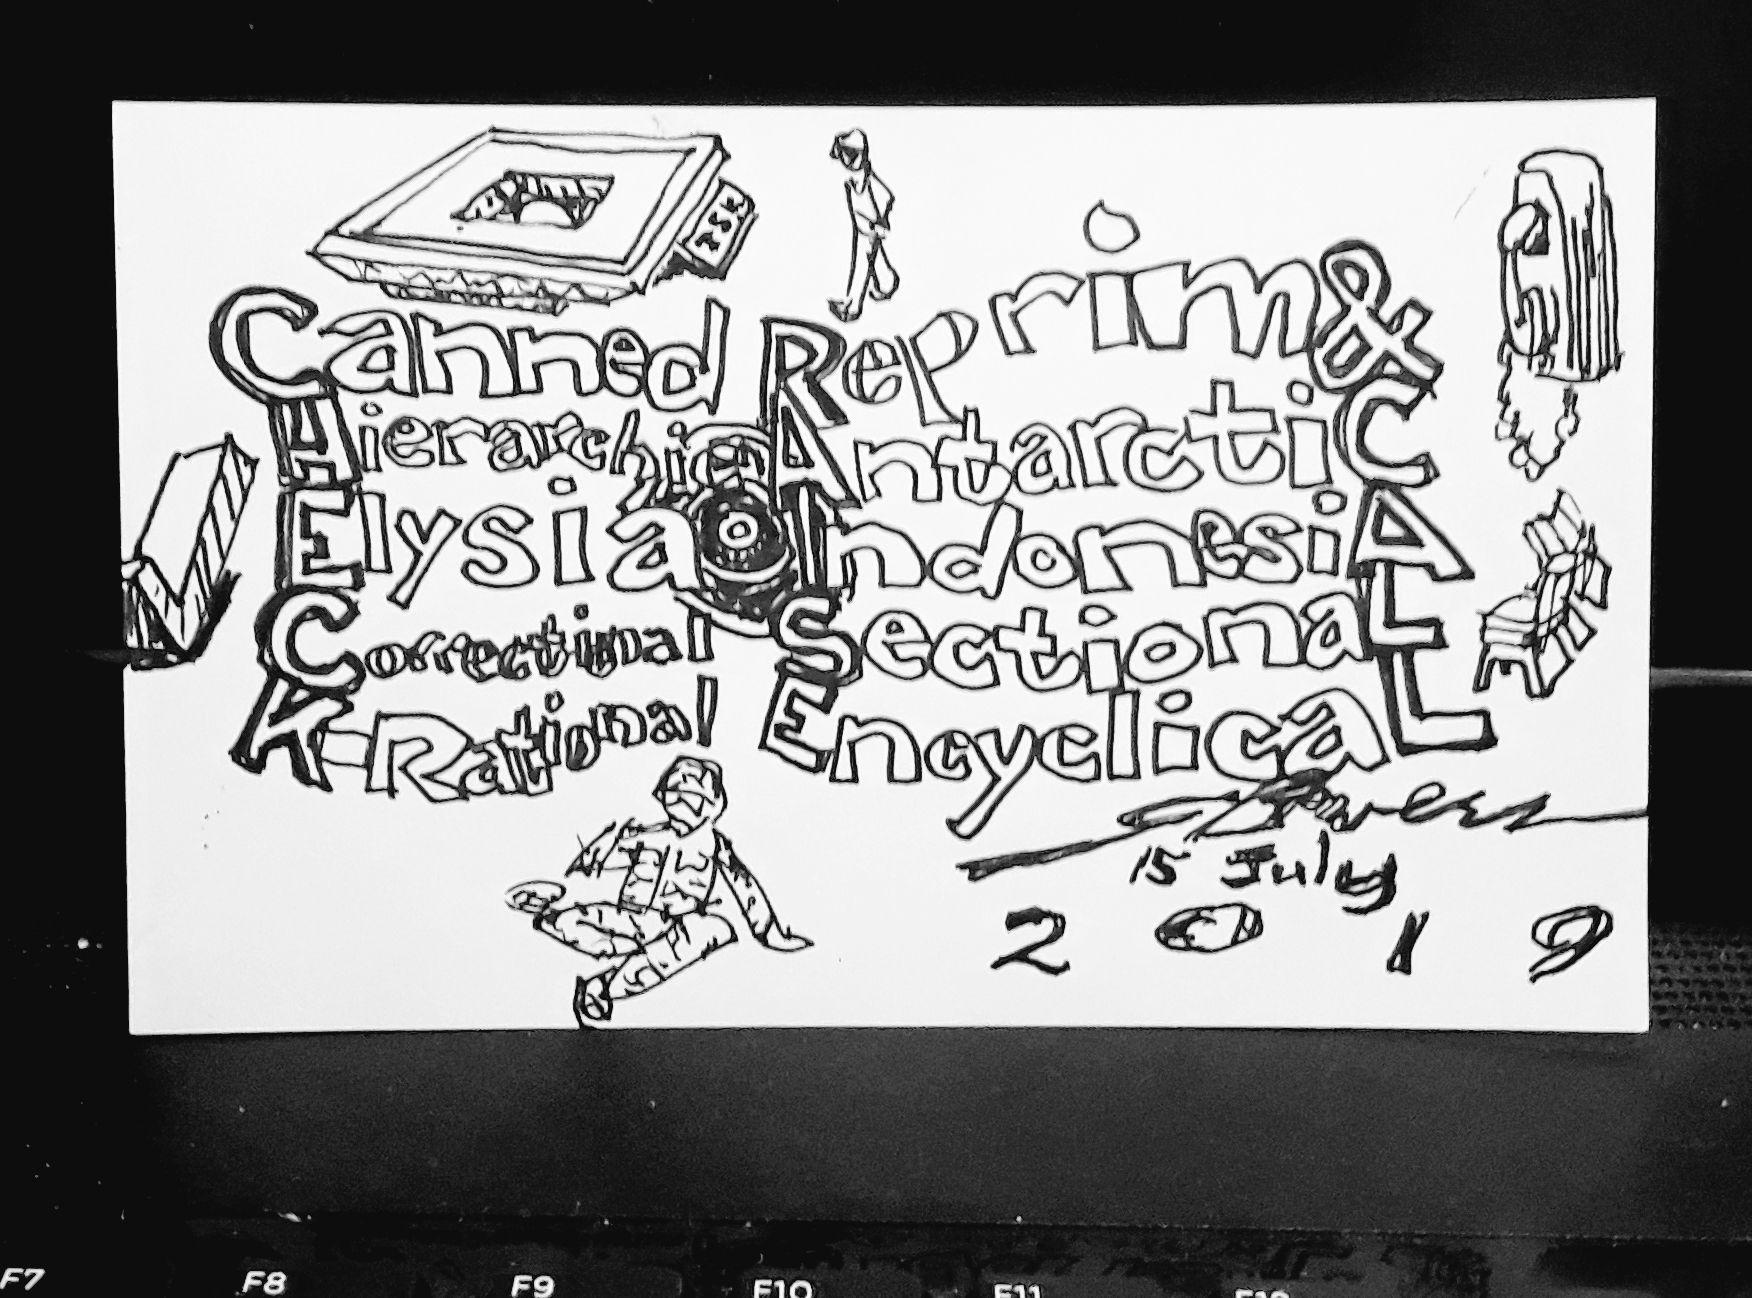 TSK
Canned Reprim&
Hierarchic AntarctiC
Elysia IndonesiA
Correctional SectionaL
K-Rational EncyclicaL
15 July
2019
F7 F8 F9 F10 F11 F12